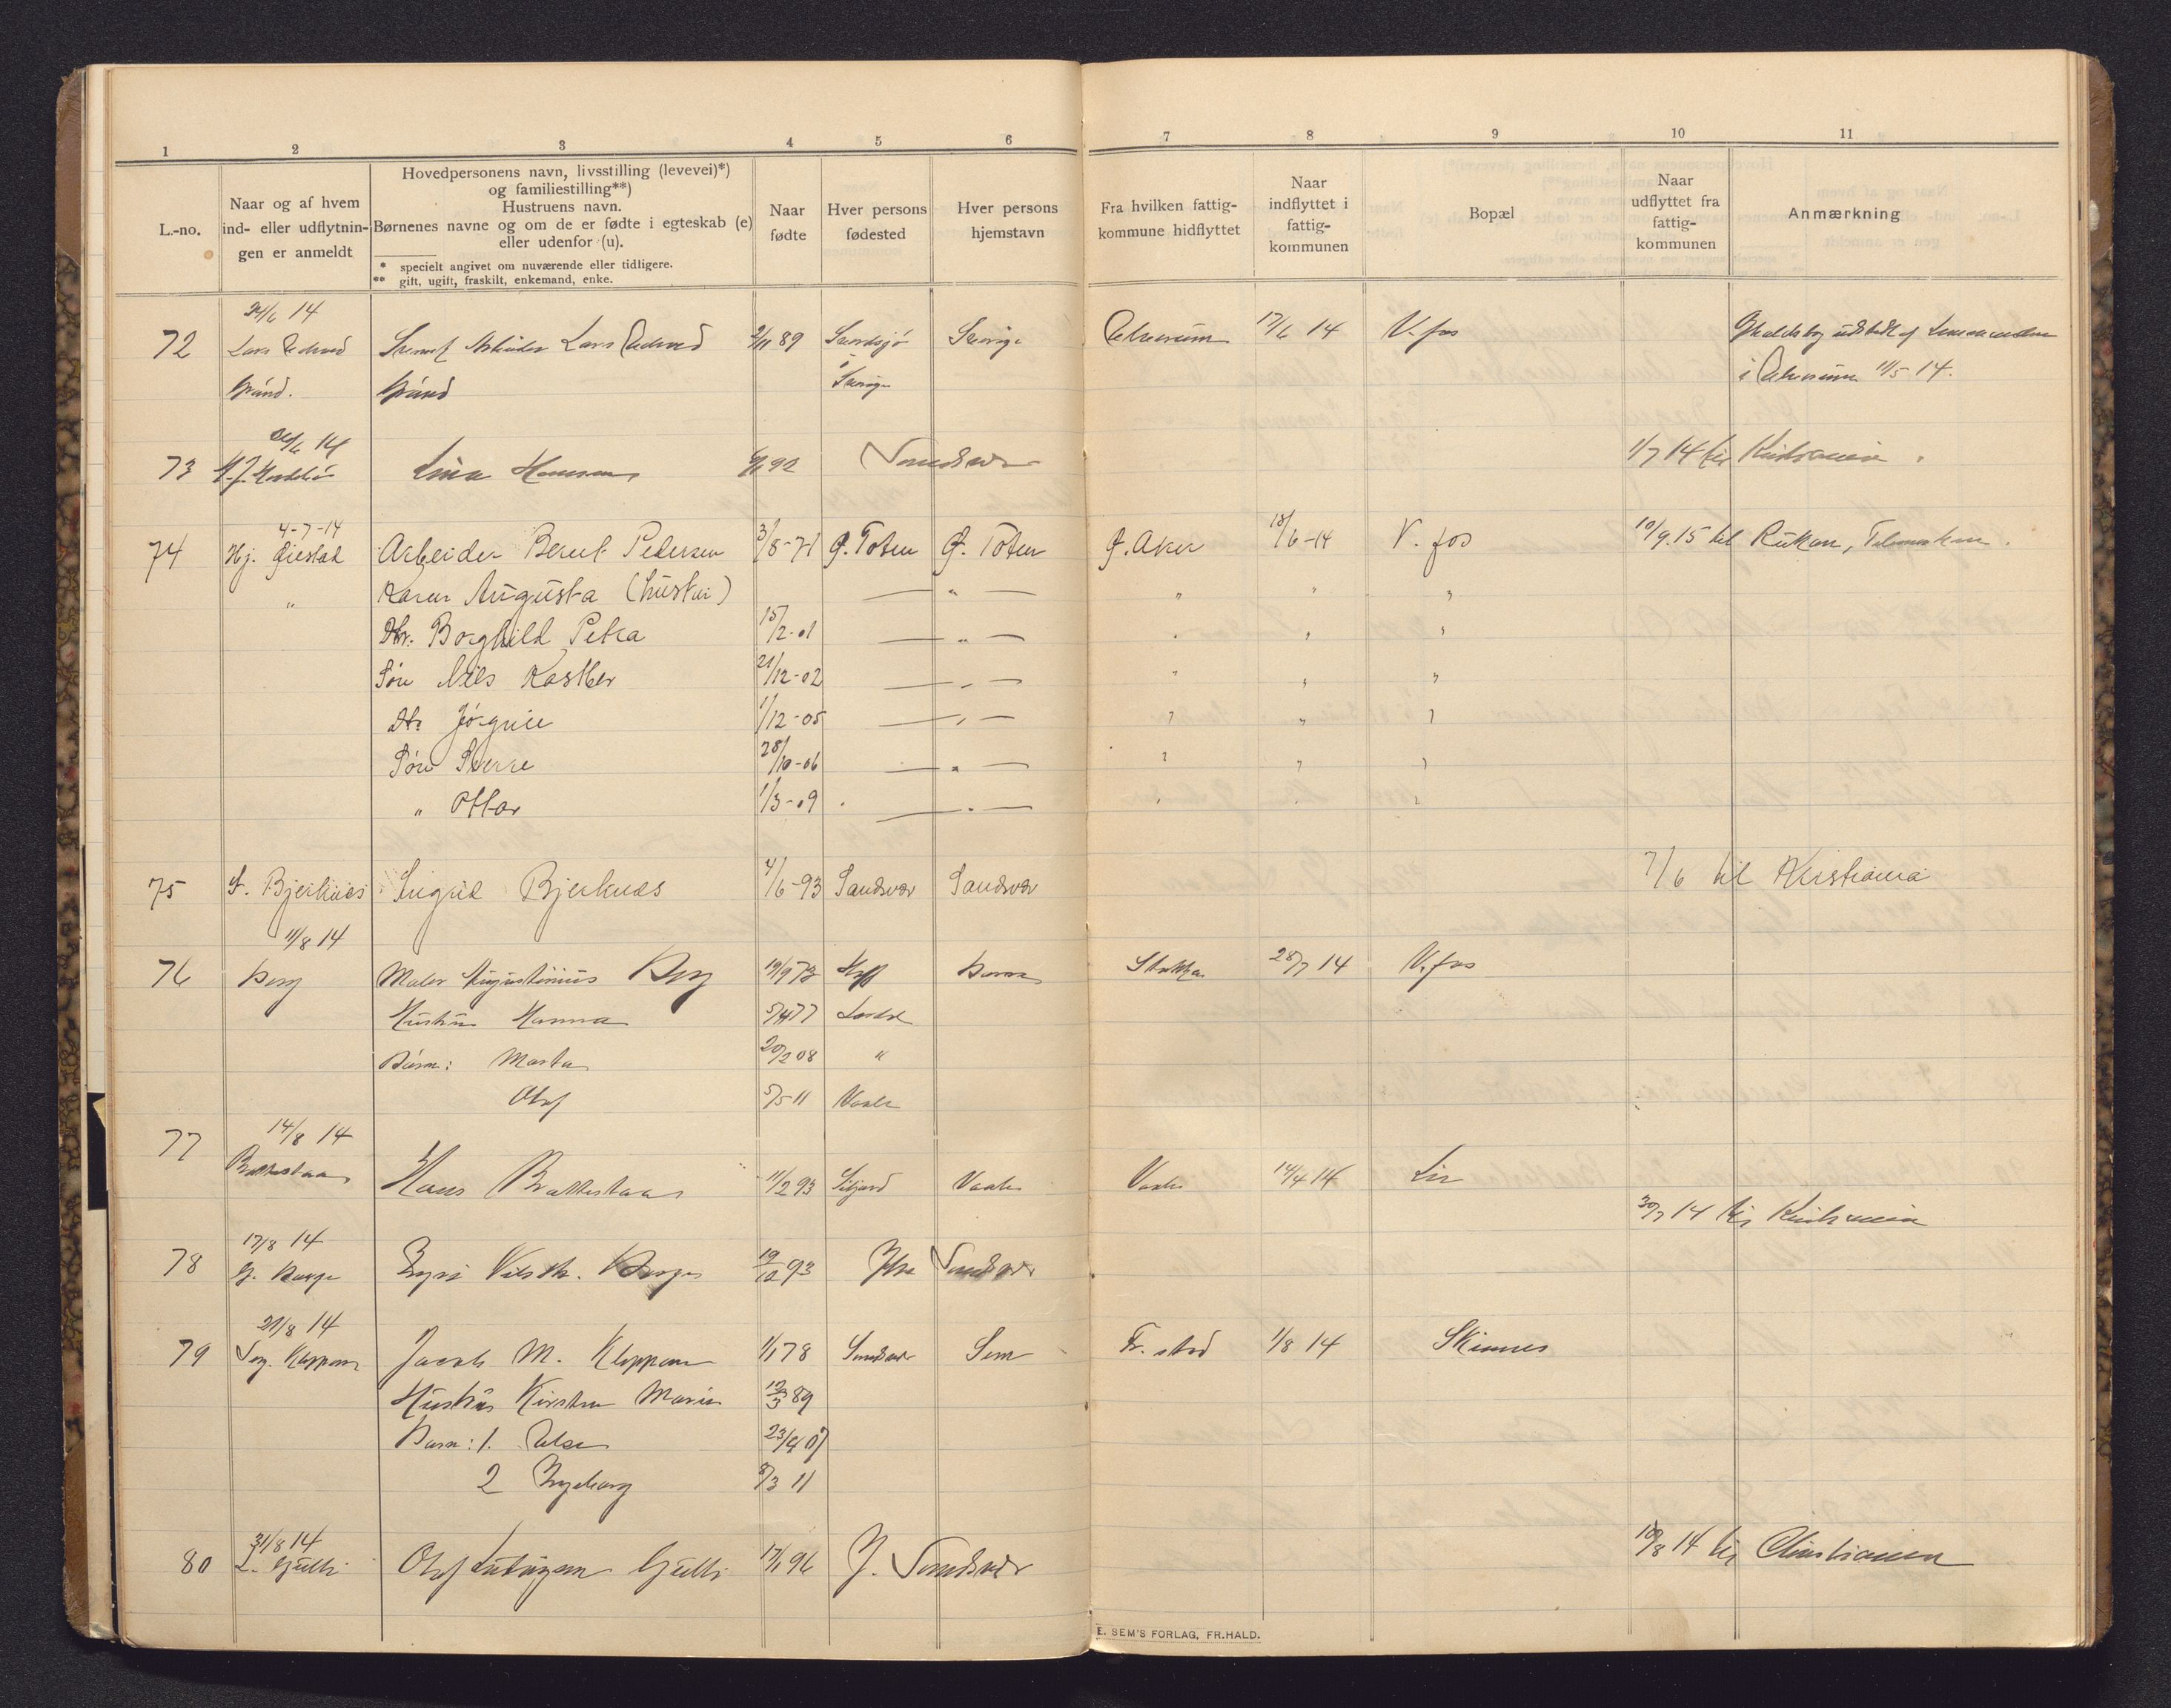 1 2 3 4 5 6 7 8 9 10 11
L.-no.
Naar og af hvem
ind- eller udflytnin-
gen er anmeldt
Hovedpersonens navn, livsstilling (levevei)*)
og familiestilling**)
Hustruens navn.
Børnenes navne og om de er fødte i egteskab (e)
eller udenfor (u).
* specielt angivet om nuværende eller tidligere.
** gift, ugift, fraskilt, enkemand, enke.
Naar
fødte
Hver persons
fødested
Hver persons
hjemstavn
Fra hvilken fattig-
kommune hidflyttet
Naar
indflyttet i
fattig-
kommunen
Bopæl
Naar
udflyttet fra
fattig-
kommunen
Anmærkning
24/6 14
72 Lars Edvard Lars Edvard 2/11 89 Sverige Elverum 17/6 14 V. fos Opholdsbog udstedt af Lensmanden
Grund. Grund i Sverige i Elverum 11/5 14.
26/6 14
73 Lina Hansen 92 Sandsvær 1/7 14 til Kristiania.
4-7-14
74 Hj. Gjestad Arbeider Bernt Pedersen 3/8-71 Ø. Toten Ø. Toten Ø. Aker 18/6-14 V. fos 10/9.15 til Rukan, Telemarken.
" Karen Augusta (hustru) — " — " " "
Dtr. Borghild Petra 15/2-01 — " — " " "
Søn Nils Kaspar 21/12-02 — " — " " "
Dtr Jørgine 1/12-05 — " — " " "
Søn Sverre 28/10-06 — " — " " "
" Ottar 1/3-09 — " — " " "
75 S. Bjerknes Ingrid Bjerknes 4/6-93 Sandsvær Sandsvær 7/6 til Kristiania
11/8 14
76 Berg Maler Augustinius Berg 19/9 73 Hof Stokke 28/7 14 V. fos
Hustru Hanna 77
Børn: Marta 20/2 08 "
Olaf 5/5 11 Vaale
77 14/8 14
Brattestaa Hans Brattestaa 11/2 93 Vaale Vaale 14/4 14 Lia
30/7 14 til Kristiania
17/8 14
78 G. Berge 19/12 93 Ytre Sandsvær
21/8 14
79 Jacob M. Kloppan 1/1 78 Sandsvær Sem Fr.stad 1/8 14 Skinnes
Hustru Kirsten Marie 12/3 89
Barn: 1. Else 23/9 07
2 Ingeborg 8/3 11
31/8 14
80 L. Gulli Olaf Gulli 17/1 96 Y. Sandsvær 10/8 14 til Christiania
E. SEM'S FORLAG, FR.HALD.